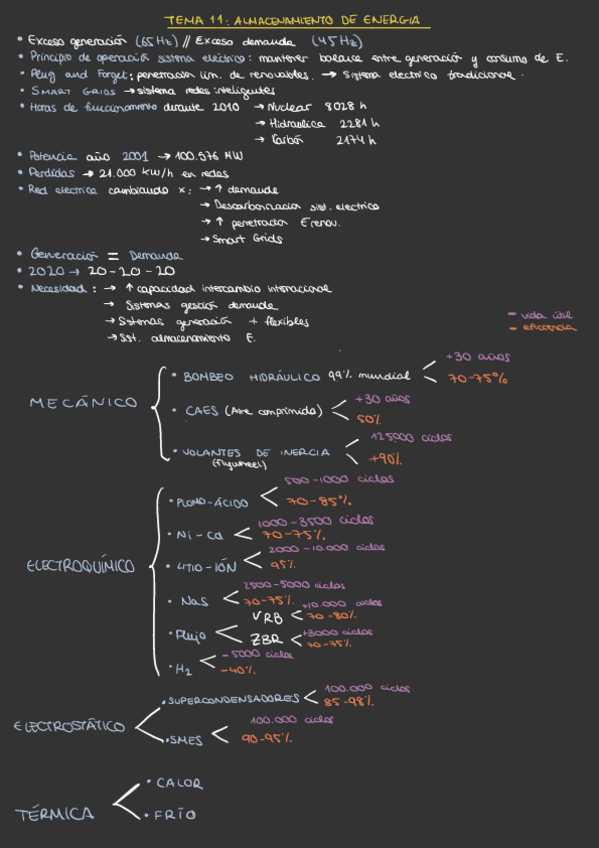 TEMA 11: ALMACENAMIENTO DE ENERGIA
• Exceso generación (65Hz) // Exceso demanda (45Hz)
• Principio de operación sistema eléctrico: mantener balance entre generación y consumo de E.
• Plug and Forget: penetración lim. de renovables. → Sistema electrico tradicional.
• SMART GRIDS → sistema redes inteligentes
• Horas de funcionamiento durante 2010 → Nuclear 8028 h
→ Hidraulica 2281 h
→ Carbón 2174 h
• Potencia año 2001 → 100.576 MW
• Perdidas → 21.000 kW/h en redes
• Red electrica cambiando x: → ↑ demanda
→ Descarbonizacion sist. electrico
→ ↑ penetracion E renov.
→ Smart Grids
• Generación = Demanda
• 2020 → 20-20-20
• Necesidad: → ↑ capacidad intercambio internacional
→ Sistemas gestión demanda
→ Sistemas generación + flexibles
→ Sist. almacenamiento E.
- vida útil
- eficiencia
MECÁNICO
• BOMBEO HIDRÁULICO 99% mundial
+30 años
70-75%
• CAES (Aire comprimido)
+30 años
50%
• VOLANTES DE INERCIA
(flywheel)
125000 ciclos
+90%
ELECTROQUÍMICO
• PLOMO-ÁCIDO
500-1000 ciclos
70-85%
• Ni-Cd
1000-3500 ciclos
70-75%
• LITIO-IÓN
2000-10.000 ciclos
95%
• NaS
2500-5000 ciclos
70-75%
• Flujo
VRB
+10.000 ciclos
70-80%
ZBR
+3000 ciclos
70-75%
• H2
-5000 ciclos
-40%
ELECTROSTÁTICO
• SUPERCONDENSADORES
100.000 ciclos
85-98%
• SMES
100.000 ciclos
90-95%
TÉRMICA
• CALOR
• FRÍO